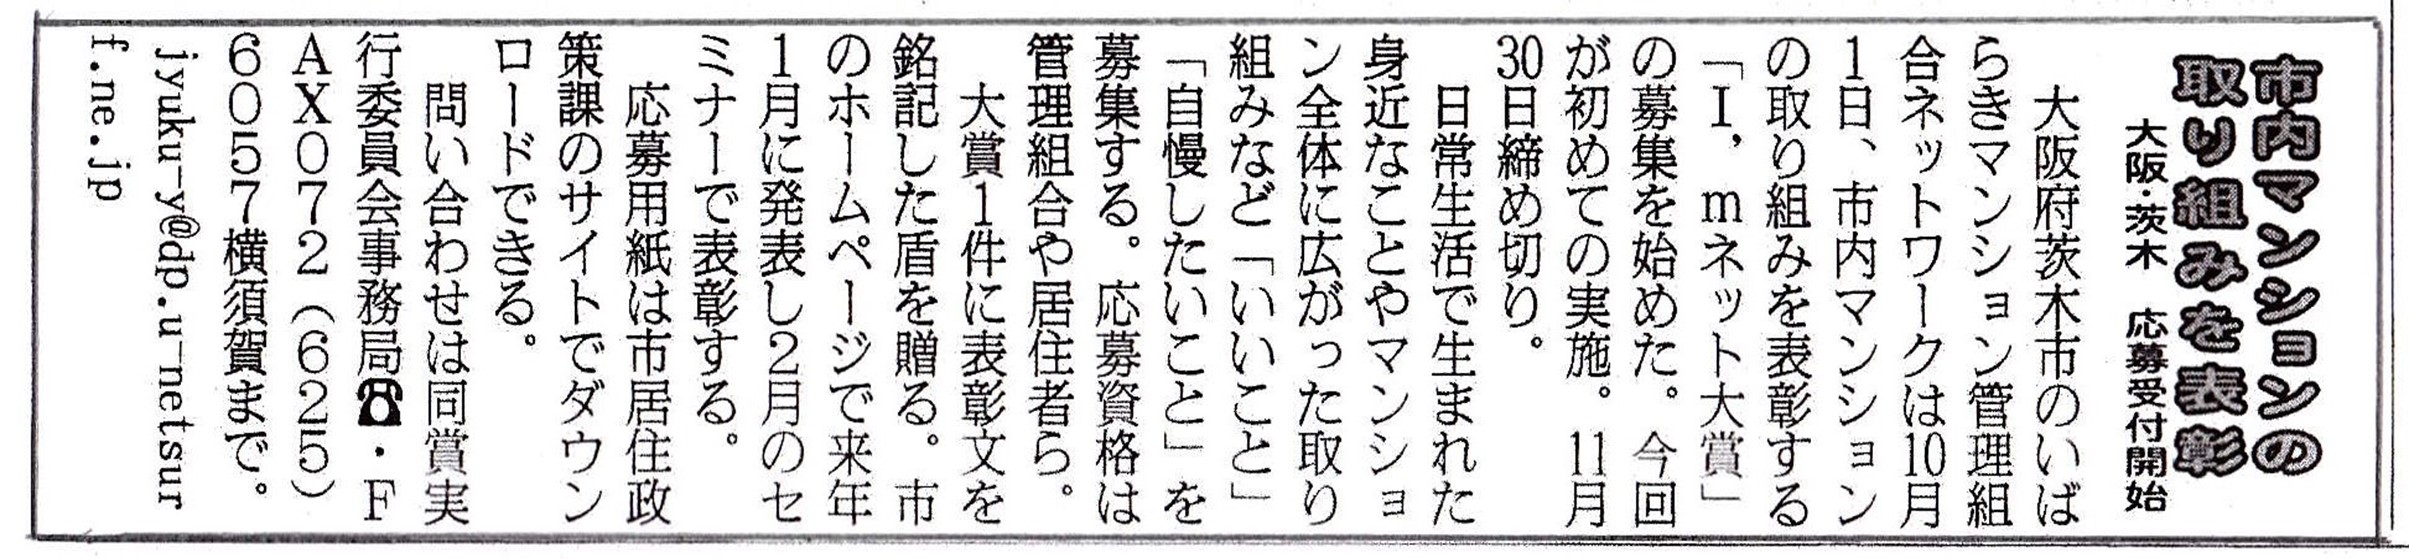 市内マンションの
取り組みを表彰
大阪・茨木　応募受付開始
　大阪府茨木市のいば
らきマンション管理組
合ネットワークは10月
1日、市内マンション
の取り組みを表彰する
「I，mネット大賞」
の募集を始めた。今回
が初めての実施。11月
30日締め切り。
　日常生活で生まれた
身近なことやマンショ
ン全体に広がった取り
組みなど「いいこと」
「自慢したいこと」を
募集する。応募資格は
管理組合や居住者ら。
　大賞1件に表彰文を
銘記した盾を贈る。市
のホームページで来年
1月に発表し2月のセ
ミナーで表彰する。
　応募用紙は市居住政
策課のサイトでダウン
ロードできる。
　問い合わせは同賞実
行委員会事務局☎・F
AX072（625）
6057横須賀まで。
jyuku-y@dp.u-netsur
f.ne.jp